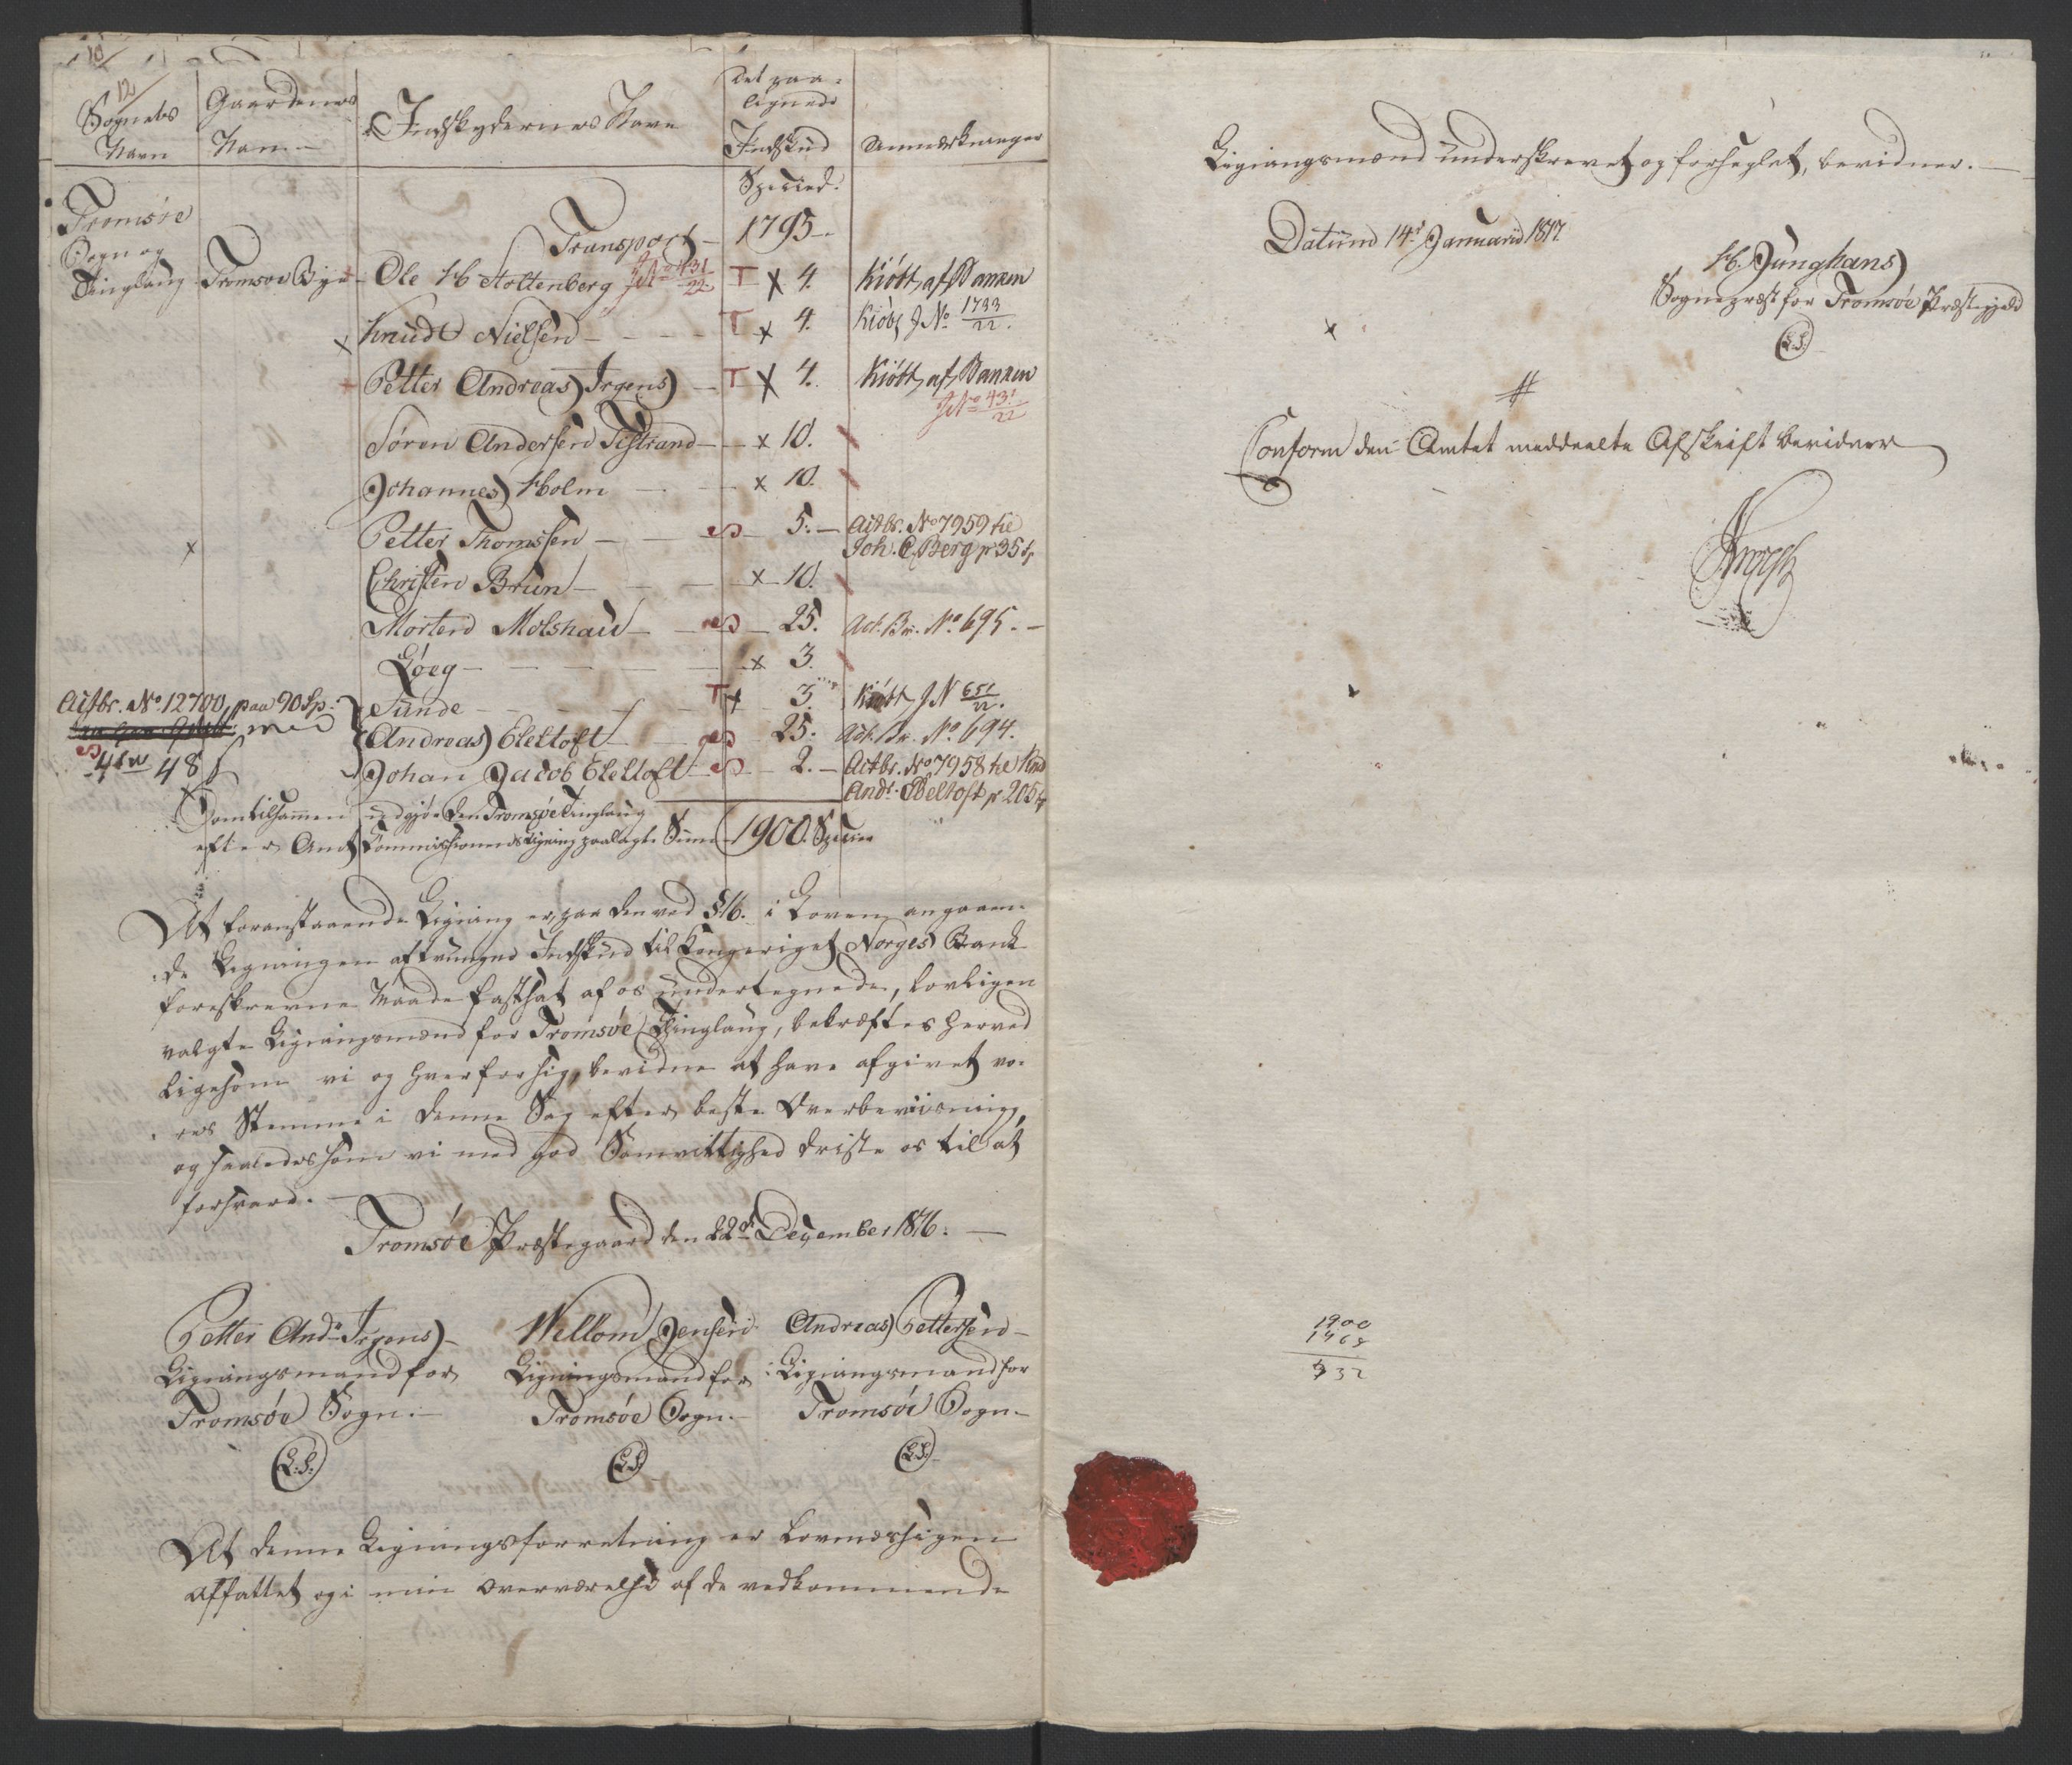 12
Sognets Navn
Gaardenes Navn
Indskydernes Navne
Det paa-
lignede
Indskud
Anmærkninger
Specied:
Tromsøe
Sogn og
Tinglaug
Transport – 1795 –
Tromsøe Bye – Ole H Stoltenberg J No 431/22 T x 4. Kiöbt af Banken
x Knudt Nielsen – T x 4. Kiöbt J No 1733/22.
Petter Andreas Irgens – T x 4. Kiöbt af Banken
J No 431/22
Sören Andersen Tistrand – x 10.
Johannes Holm – x 10.
Petter Thomssen – S – 5. – Actbr. No 7959 til
Joh. C. Berg p 35 s
Christen Brun – x 10.
Morten Molshau – S – 25. Act. Br. No 695. –
Løeg – x 3.
Sunde – T x 3. Kiöbt J N 651/22.
Andreas Ebeltoft – S 25. Act. Br. No 694.
Johan Jacob Ebeltoft – S – 2. – Actbr. No 7958 til
And. Ebeltoft p 205
Actbr. No 12700, paa 90 Sp.
med
48
Som tilsammen udgjør den Tromsøe Tinglaug
efter Amts Commissionens Ligning paalagte Summa 1900. Specier
At foranstaaende Ligning er, paa den ved § 16. i Loven angaaen-
de Ligningen af tvungne Indskud til Kongeriget Norges Bank
foreskrevne Maade fastsat af os undertegnede, lovligen
valgte Ligningsmænd for Tromsøe Thinglaug, bekræftes herved
ligesom vi og hver for sig, bevidne at have afgivet vo-
res Stemme i denne Sag efter beste Overbeviisning,
og saaledes som vi med god Samvittighed driste os til at
forsvare. –
Tromsøe Præstegaard den 22de December 1816. –
Petter Andr. Irgens –
Ligningsmand for
Tromsøe Sogn. –
(L. S.)
Willom Jensen
Ligningsmand for
Tromsøe Sogn. –
(L. S.)
Andreas Pettersen –
Ligningsmand for
Tromsøe Sogn –
(L. S.)
At denne Ligningsforretning er lovmæssigen
affattet og i min Overværelse af de vedkommende
Ligningsmænd underskrevet og forseglet, bevidner. –
Datum 14de Januarii 1817
H. Junghans
Sognepræst for Tromsøe Præstegjeld
(L. S.)
Conform den Amtet meddeelte Afskrift bevidner
1900
1468
432